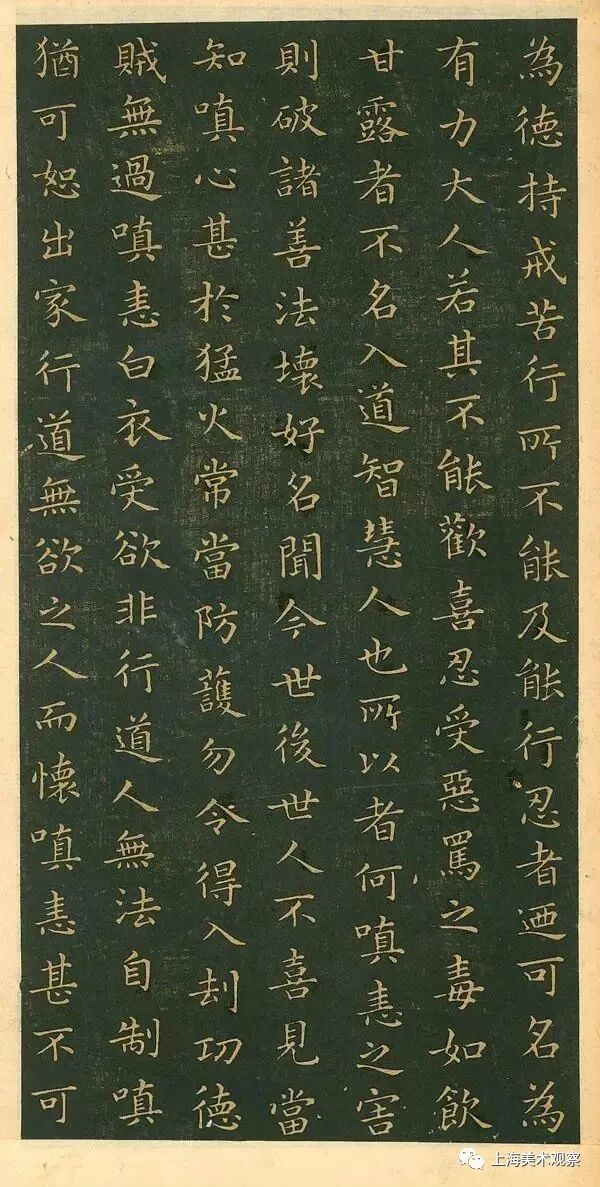 為德持戒苦行所不能及能行忍者迺可名為
有力大人若其不能歡喜忍受惡罵之毒如飲
甘露者不名入道智慧人也所以者何嗔恚之害
則破諸善法壞好名聞今世後世人不喜見當
知嗔心甚於猛火常當防護勿令得入刦功德
賊無過嗔恚白衣受欲非行道人無法自制嗔
猶可恕出家行道無欲之人而懷嗔恚甚不可
上海美术观察